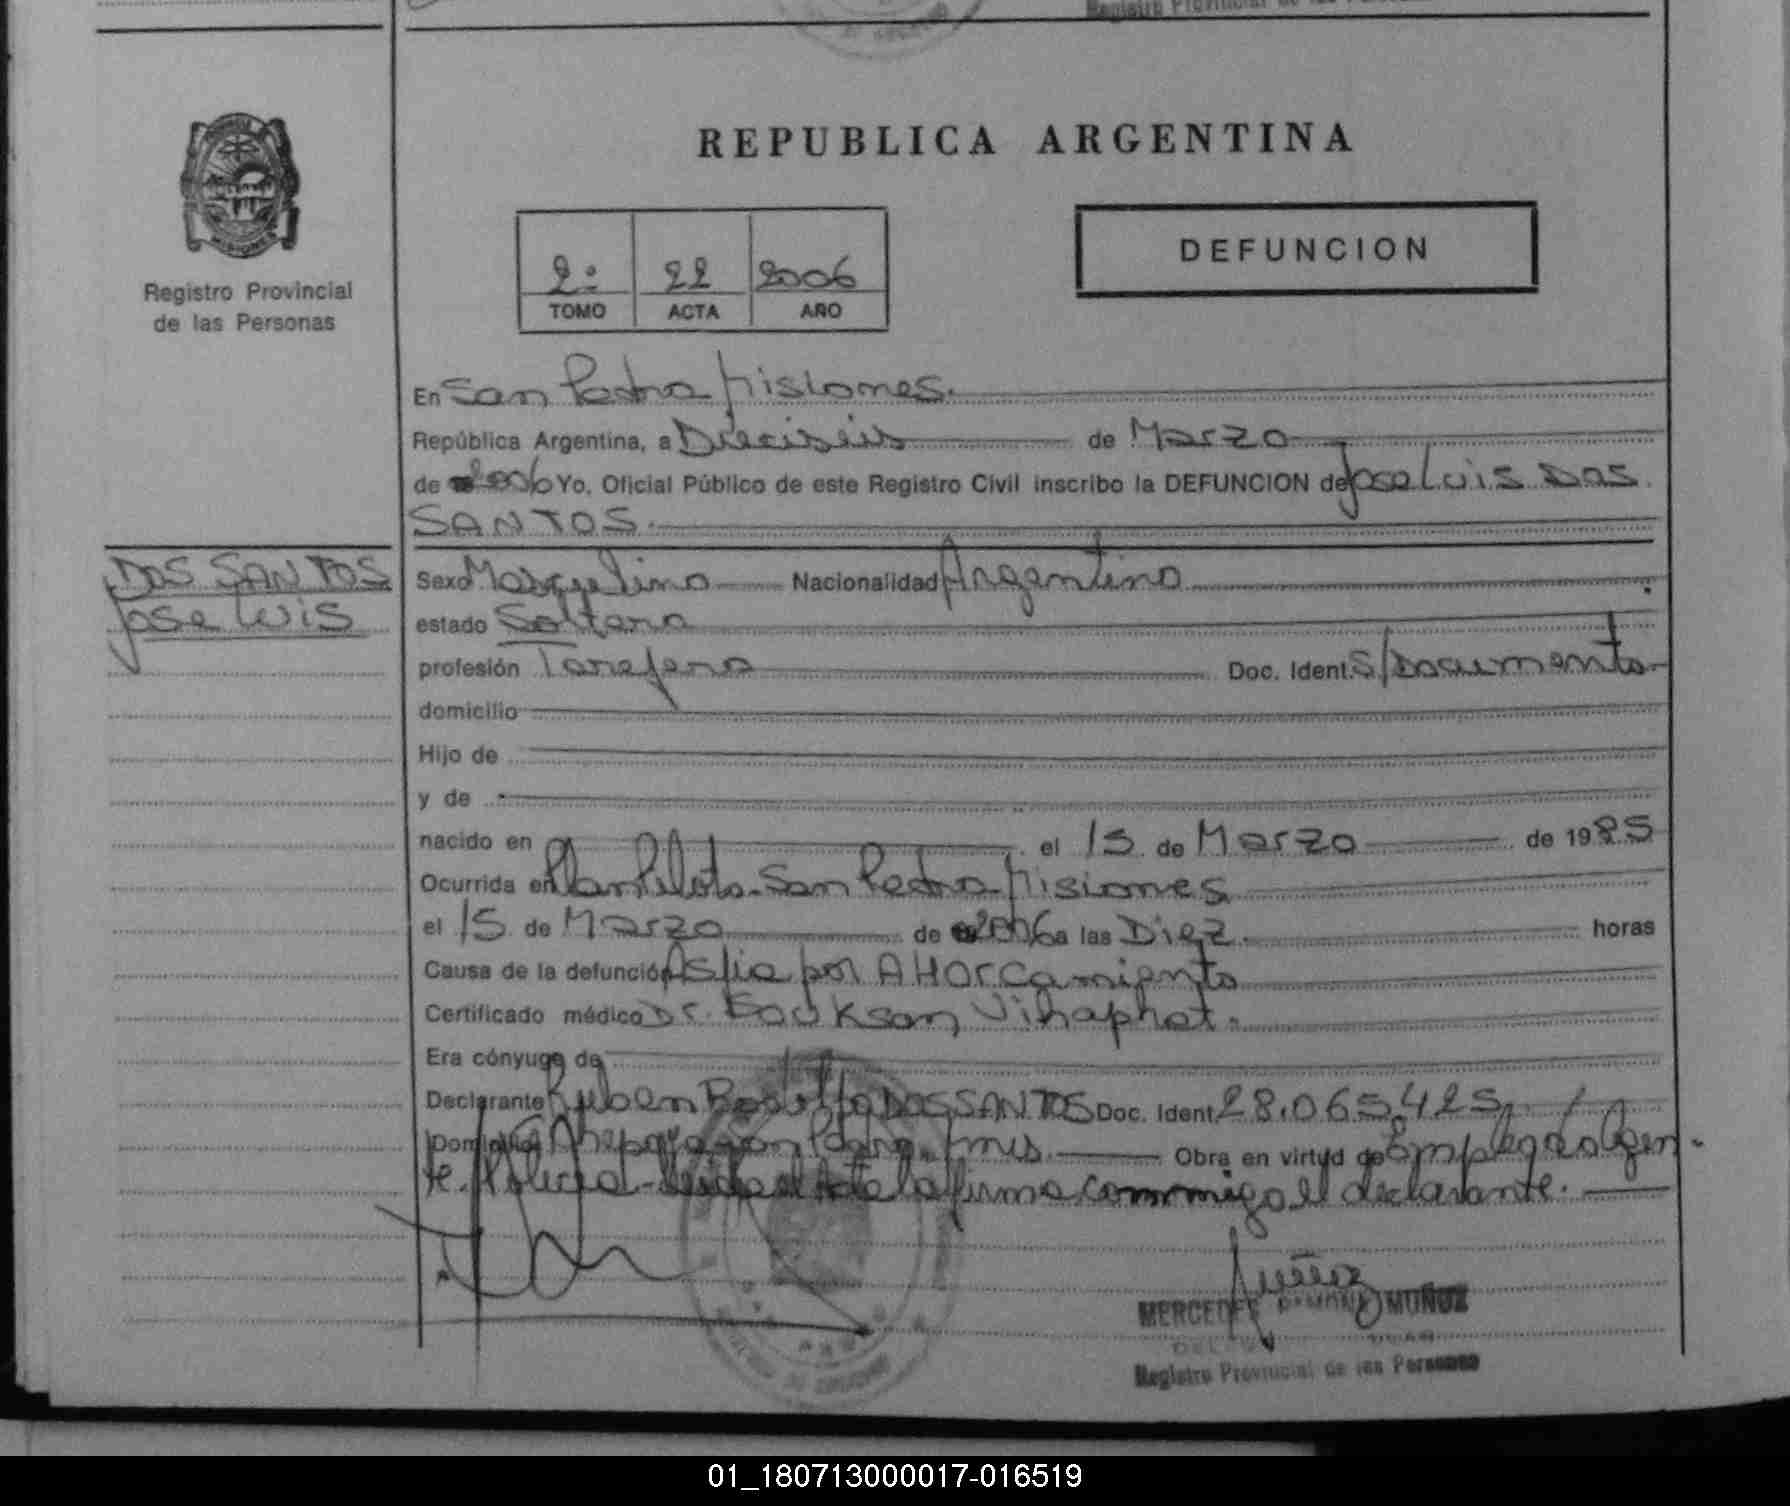 Registro Provincial de las Personas
REPUBLICA ARGENTINA
MISIONES
Registro Provincial
de las Personas
2º 22 2006
TOMO ACTA AÑO
DEFUNCION
En San Pedro Misiones.
República Argentina, a Dieciséis de Marzo
de 2006 Yo, Oficial Público de este Registro Civil inscribo la DEFUNCION de Jose Luis DOS
SANTOS.
DOS SANTOS
Jose Luis
Sexo Masculino Nacionalidad Argentino
estado Soltero
profesión Tarefero Doc. Ident. S/Documento
domicilio
Hijo de
y de
nacido en el 15 de Marzo de 1985
Ocurrida en Plan Piloto. San Pedro Misiones
el 15 de Marzo de 2006 a las Diez. horas
Causa de la defunción Asfia por AHOrcamiento
Certificado médico Dr. Vihaphat.
Era cónyuge de
Declarante Ruben Rodolfo DOS SANTOS Doc. Ident. 28.065.425
Domicilio San Pedro. Mis. Obra en virtud de Empleado Agen-
te. Policia - Leida el Acta la firma conmigo el declarante.
Muñoz
MERCEDES RAMONA MUÑOZ
Registro Provincial de las Personas
01_180713000017-016519